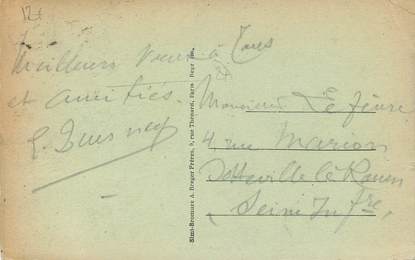 12 €
Meilleurs voeux à Tous
et amitiés.
Monsieur Lefèvre
4 rue Marion
Sotteville lè Rouen
Seine Infre
Simi-Bromure A. Breger Frères, 9, rue Thénard, Paris